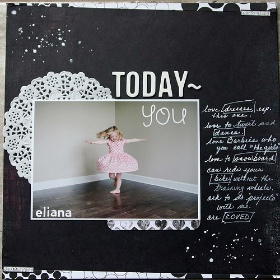 TODAY~
YOU
love dresses, esp.
this one.
love to twirl and
dance.
love Barbies who
you call "the girls"
love to snowboard
can ride your
bike without the
training wheels.
ask to do projects
with me.
are LOVED
eliana